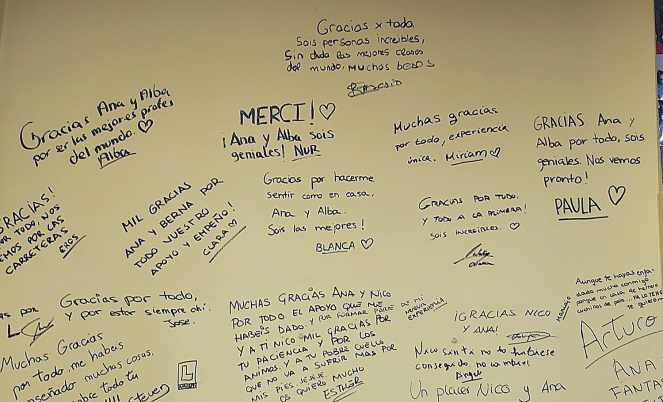 Gracias x todo
Sois personas increibles,
Sin duda las mejores
del mundo, muchos besos
Gracias Ana y Alba
por ser las mejores profes
del mundo. ♡
Alba
MERCI! ♡
¡Ana y Alba sois
geniales! NUR
Muchas gracias
por todo, experiencia
única. Miriam ♡
GRACIAS Ana y
Alba por todo, sois
geniales. Nos vemos
pronto!
PAULA ♡
GRACIAS!
POR TODO, NOS
VEMOS POR LAS
CARRETERAS
MIL GRACIAS
ANA y BERNA POR
TODO VUESTRO
APOYO Y EMPEÑO!
CLARA ♡
Gracias por hacerme
sentir como en casa,
Ana y Alba.
Sois las mejores!
BLANCA ♡
GRACIAS POR TODO.
Y TODO A LA PRIMERA!
SOIS INCREIBLES. ♡
POR
Gracias por todo,
y por estar siempre ahí.
Jose.
MUCHAS GRACIAS ANA y NICO
POR TODO EL APOYO QUE ME
HABEIS DADO Y POR FORMAR PARTE DE MI
NUEVA
EXPERIENCIA
Y A TI NICO MIL GRACIAS POR
TU PACIENCIA Y POR LOS
ANIMOS. Y A TU POBRE CUELLO
QUE NO VA A SUFRIR MAS POR
MIS PIES JEJEJE.
OS QUIERO MUCHO
ESTHER
¡GRACIAS NICO
Y ANA!
Nico sin ti no lo hubiese
conseguido,
Angel
Aunque te hayas enfa-
dado mucho conmigo
Arturo
Muchas Gracias
por todo me habeis
enseñado muchas cosas.
sobre todo tu
Steven
L
Un placer Nico y Ana
ANA
FANTA